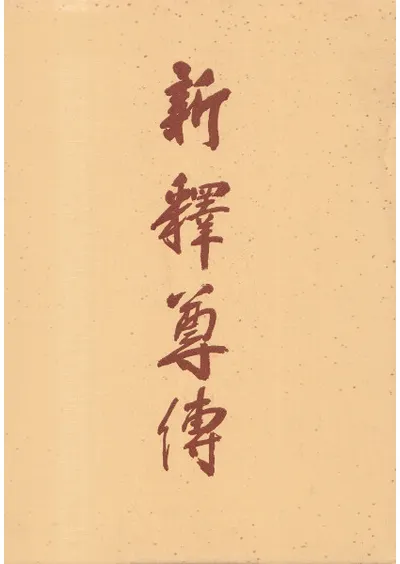 新釋尊傳